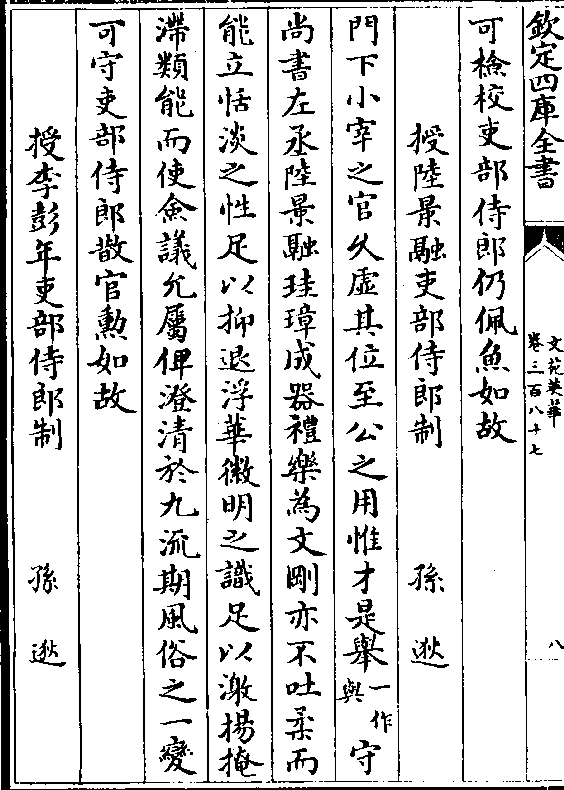 欽定四庫全書
文苑英華
卷三百八十七
八
可檢校吏部侍郎仍佩魚如故
授陸景融吏部侍郎制 孫逖
門下小宰之官久虛其位至公之用惟才是舉一作與守
尚書左丞陸景融珪璋成器禮樂為文剛亦不吐柔而
能立恬淡之性足以抑退浮華徽明之識足以激揚掩
滯類能而使僉議允屬俾澄清於九流期風俗之一變
可守吏部侍郎散官勲如故
授李彭年吏部侍郎制 孫逖